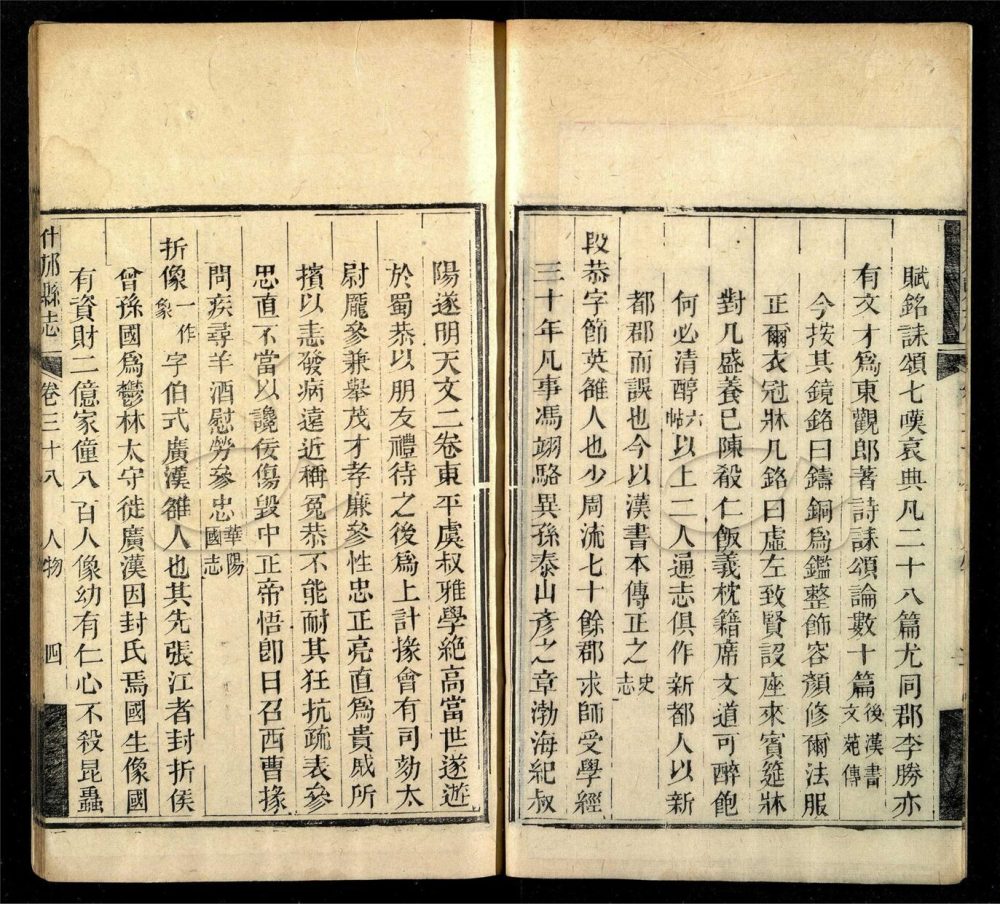 賦銘誄頌七嘆哀典凡二十八篇尤同郡李勝亦
有文才爲東觀郎著詩誄頌論數十篇後漢書文苑傳
今按其鏡銘曰鑄銅爲鑑整飾容顏修爾法服
正爾衣冠牀几銘曰虛左致賢設座來賓筵牀
對几盛養已陳殽仁飯義枕籍席文道可醉飽
何必清醇六帖以上二人通志俱作新都人以新
都郡而誤也今以漢書本傳正之史志
段恭字節英雒人也少周流七十餘郡求師受學經
三十年凡事馮翊駱異孫泰山彦之章渤海紀叔
陽遂明天文二卷東平虞叔雅學絶高當世遂遊
於蜀恭以朋友禮待之後爲上計掾會有司劾太
尉龐參兼舉茂才孝廉參性忠正亮直爲貴戚所
擯以恚發病遠近稱冤恭不能耐其狂抗疏表參
思直不當以讒佞傷毀中正帝悟卽日召西曹掾
問疾尋羊酒慰勞參忠華陽國志
折像一作象字伯式廣漢雒人也其先張江者封折侯
曾孫國爲鬱林太守徙廣漢因封氏焉國生像國
有資財二億家僮八百人像幼有仁心不殺昆蟲
什邡縣志
卷三十八
人物
四